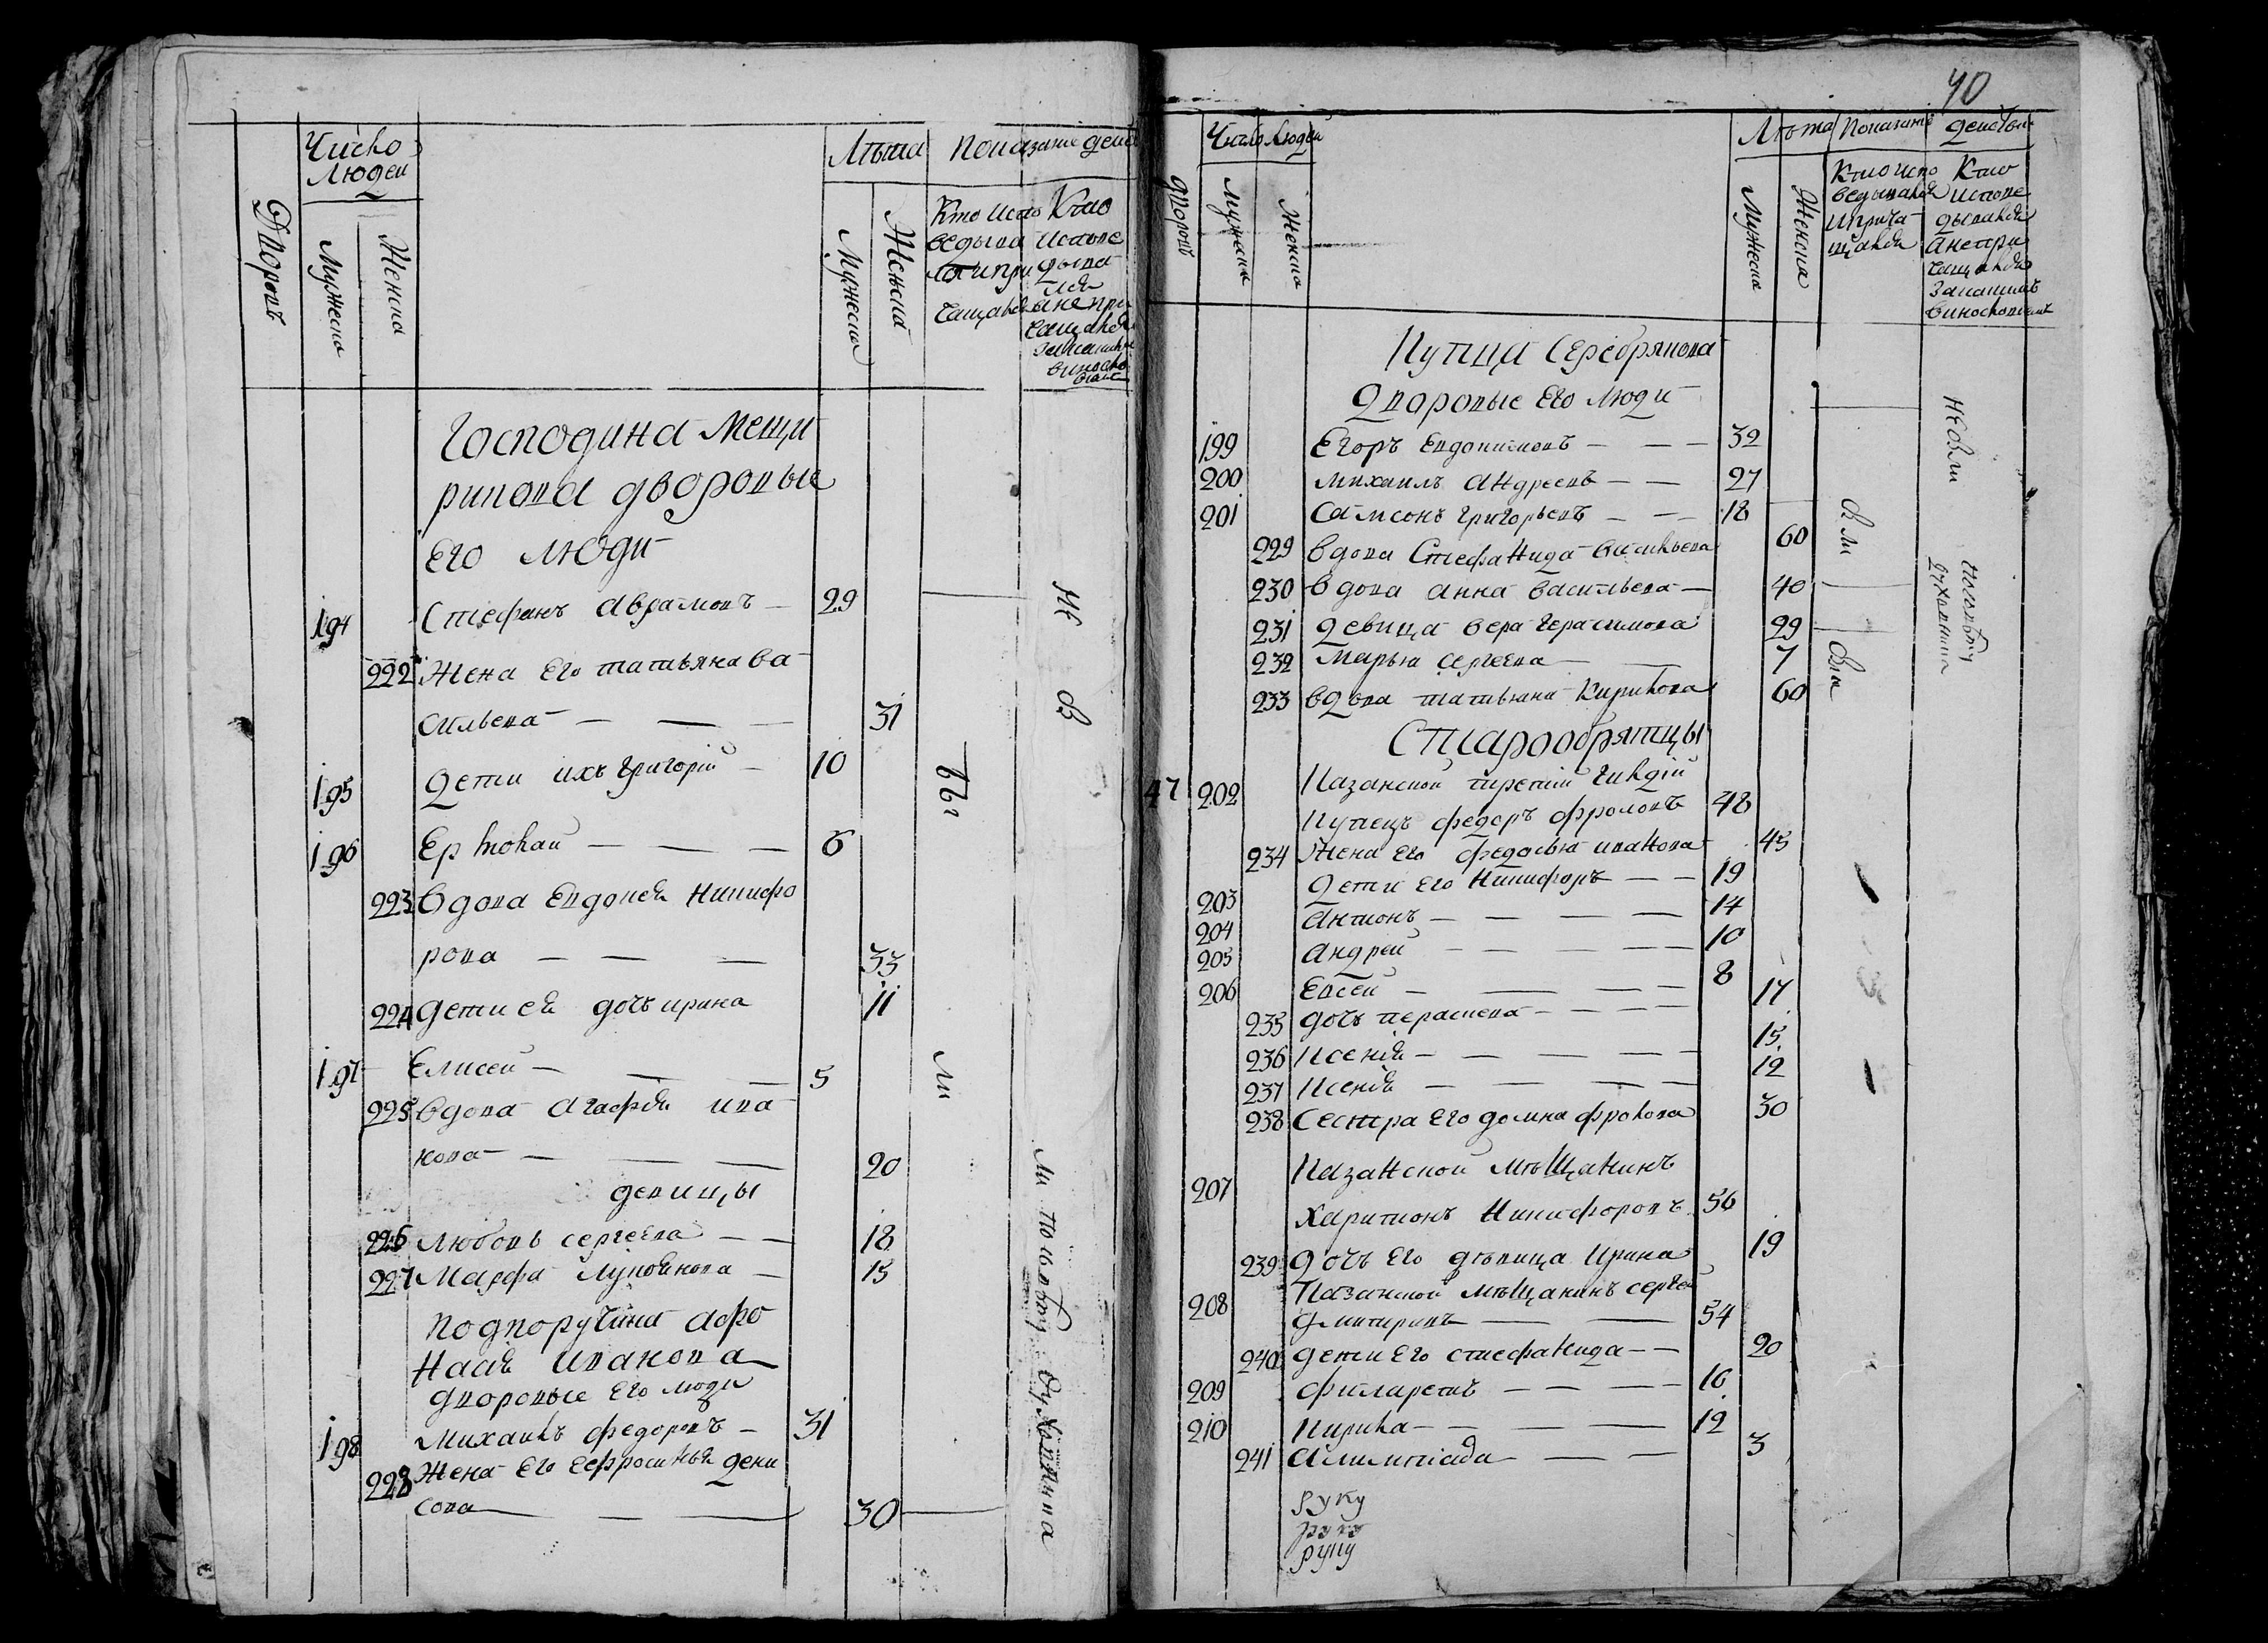 Число
Людей
Лѣта
Показание дейс
Дворовъ
Мужеска
Женска
Мужеска
Женска
Кто испо
ведыва
ся и при
чащался
Кто
испове
дыва
лся
а не при
чащался
Господина Мещи
ринова дворовые
его люди
194 Стефанъ Аврамовъ — 29
222 Жена его татьяна ва
сильева — — — 31
195 Дети ихъ Григорій — 10
196 Ермолай — — — 6
223 Вдова Евдокея Никифо
рова — — — 33
224 Дети ея дочь ирина 11
197 Елисей — — — 5
225 Вдова Агафія ива
нова — — — 20
девицы
226 Любовь сергеева — — 18
227 Марфа Лукоянова — 15
Подпоручика Афо
насья Иванова
дворовые его люди
198 Михаилъ федоровъ — 31
228 Жена его ефросинья дени
сова — — — 30
бы
ли
не
в
ли по
духовника
40
Число Людей
Лѣта
Показание
действ
дворовъ
Мужеска
Женска
Мужеска
Женска
Кто испо
ведывался
и прича
щался
Кто
испове
дывался
а не при
чащался
Купца Серебрякова
Дворовые его люди
199 Егоръ Евдокимовъ — — — 32
200 Михаилъ Андреевъ — — 27
201 Самсонъ Григорьевъ — — — 18
229 Вдова Стефанида Васильева 60
230 Вдова Анна Васильева — 40
231 Девица Вера Герасимова 29
232 Марья Сергеева — — 7
233 Вдова татьяна Кирилова 60
Старообрятцы
47 202 Казанской третій гилдіи
Купецъ федоръ фроловъ 48
234 Жена его федосья иванова 45
203 Дети его Никифоръ — — 19
204 Антонъ — — — — 14
205 Андрей — — — — 10
206 Евсей — — — — 8
235 дочь парасковья — — — — 17
236 Ксенія — — — — 15
237 Ксенія — — — — 12
238 Сестра его домна фролова 30
207 Казанской мѣщанинъ
Харитонъ Никифоровъ 56
239 Дочь его дѣвица Ирина 19
208 Казанской мѣщанинъ сергей
дмитриевъ — — 54
240 дети его стефанида — — 20
209 филаретъ — — — — 16
210 Кирила — — — 12
241 Алимпіада — — — 3
руку
руку
руку